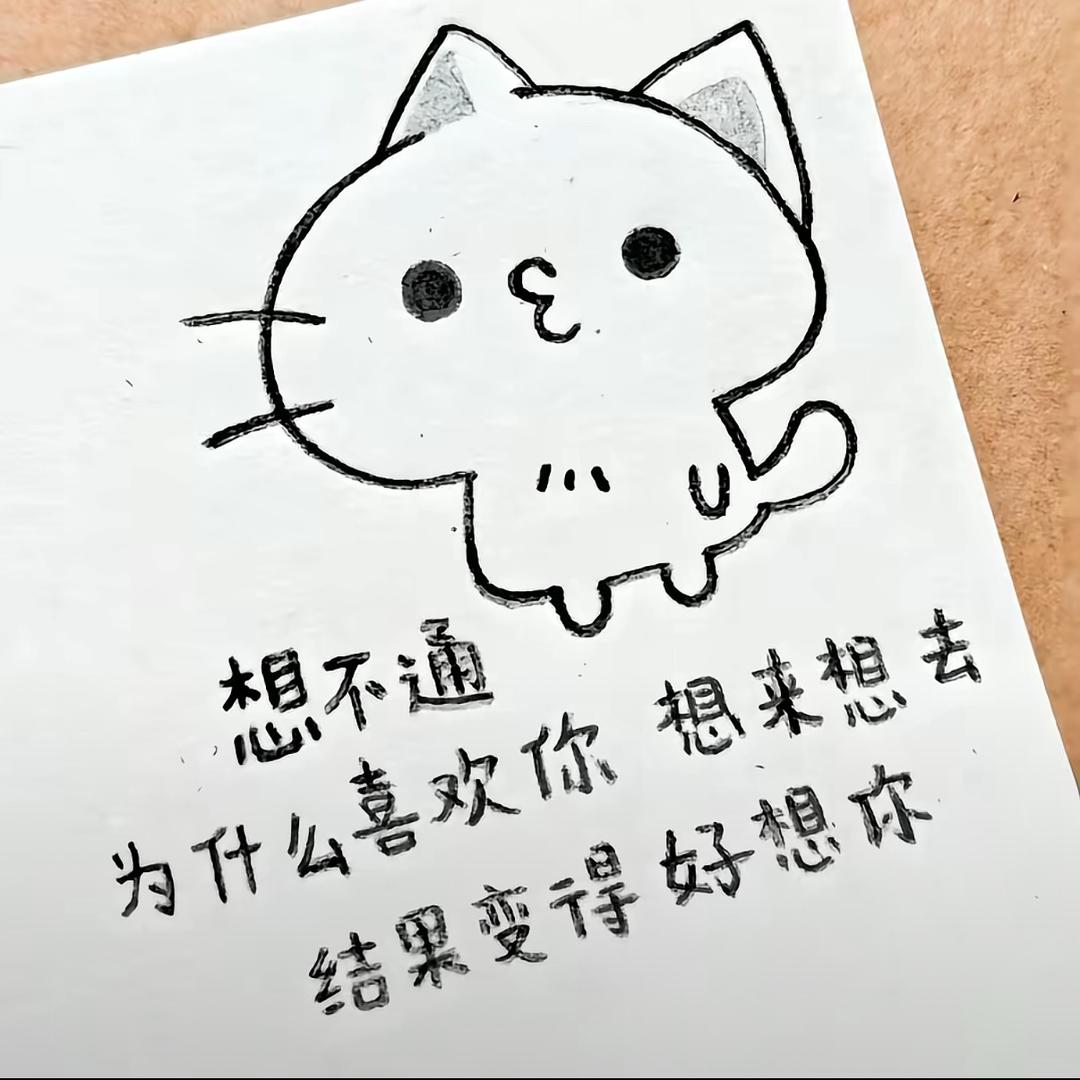 想不通
为什么喜欢你 想来想去
结果变得好想你